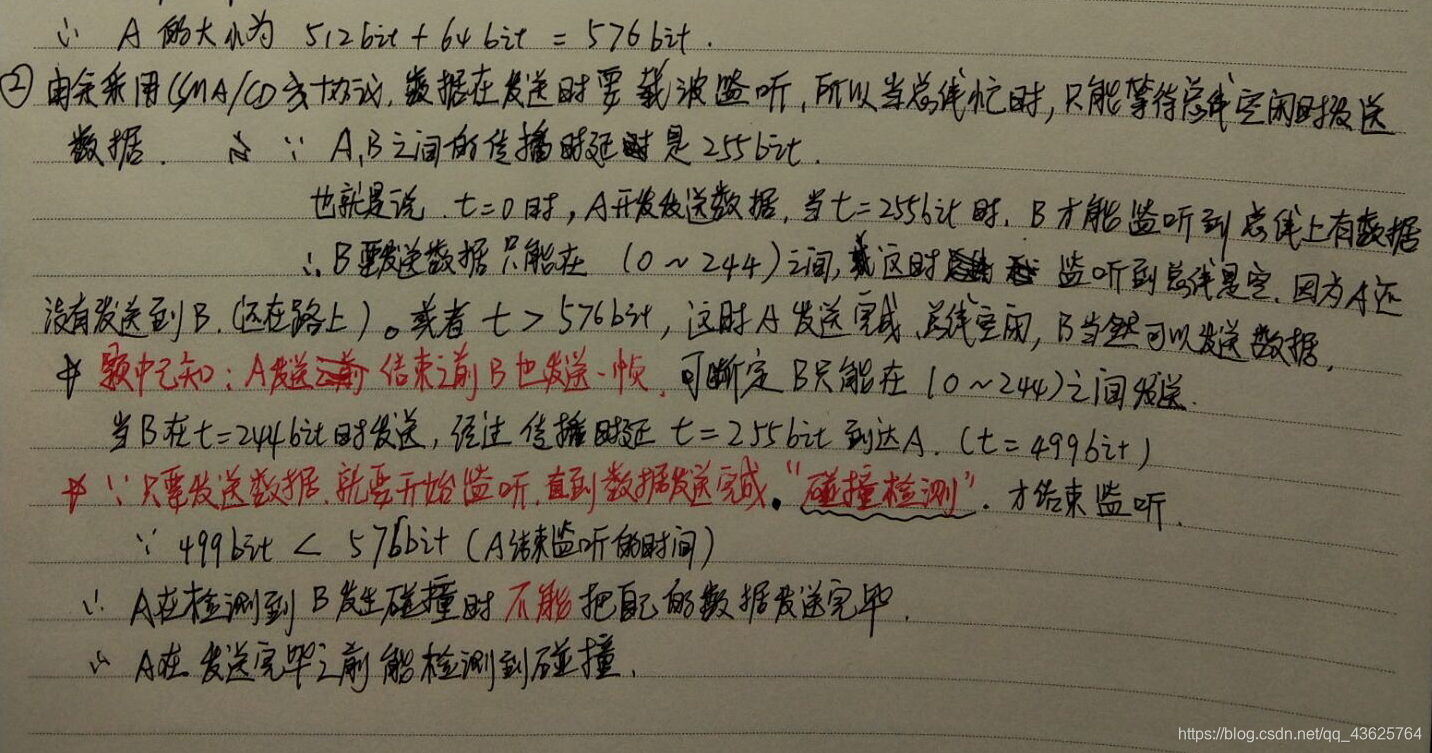 ∴ A的大小为 512bit + 64bit = 576bit.
② 由于采用CSMA/CD协议,数据在发送时要载波监听,所以当总线忙时,只能等待总线空闲时发送
数据. ∵ A,B之间的传播时延时是255bit.
也就是说.t=0时,A开发发送数据,当t=255bit时.B才能监听到总线上有数据
∴B要发送数据只能在 (0~244)之间,这时监听到总线是空.因为A还
没有发送到B.(还在路上)。或者 t > 576bit,这时A发送完成.总线空闲,B当然可以发送数据.
题中已知:A发送结束之前B也发送一帧.可断定B只能在(0~244)之间发送.
当B在t=244bit时发送,经过传播时延 t=255bit 到达A.(t=499bit)
∵只要发送数据.就要开始监听.直到数据发送完成."碰撞检测".才结束监听.
∵ 499bit < 576bit (A结束监听的时间)
∴ A在检测到B发生碰撞时不能把自己的数据发送完毕.
∴ A在发送完毕之前能检测到碰撞.
https://blog.csdn.net/qq_43625764